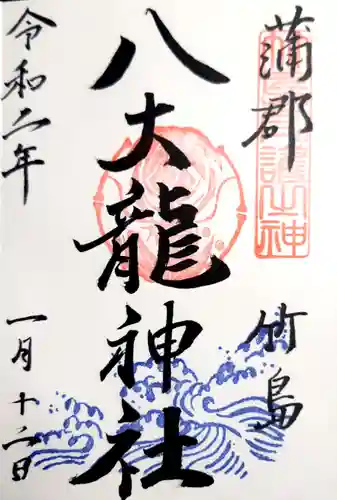 蒲郡
竹島
八大龍神社
令和二年
一月十二日